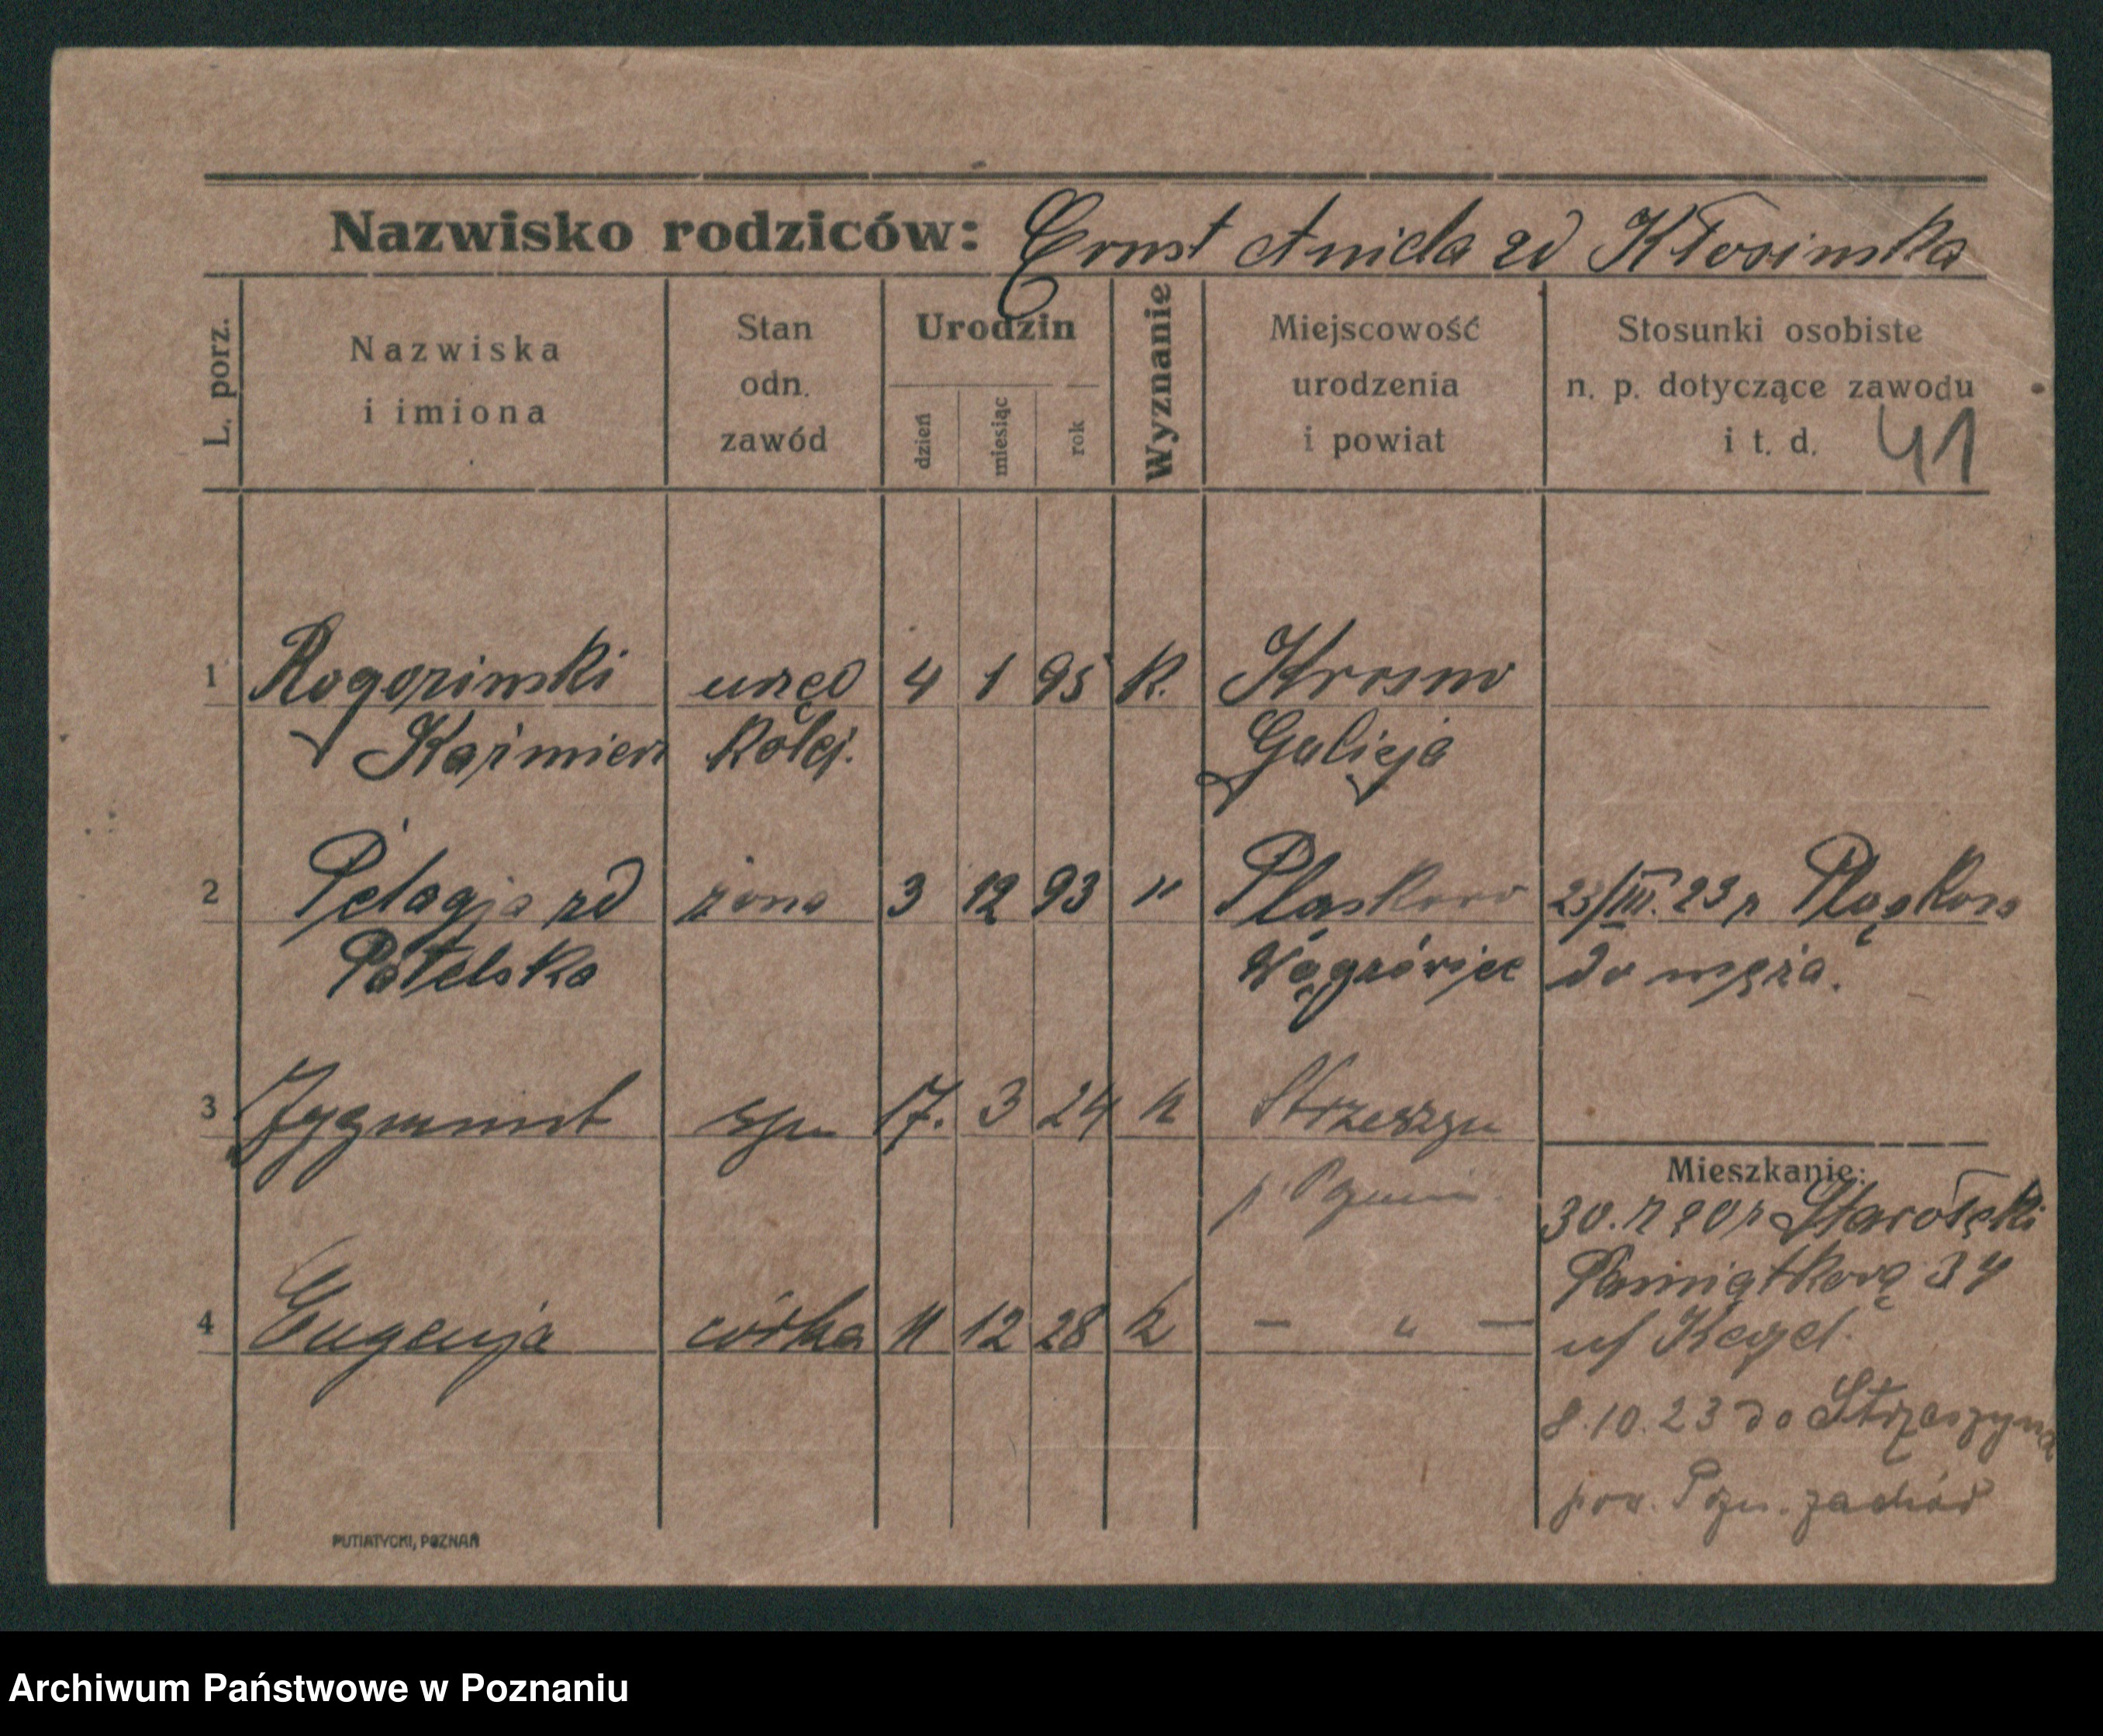 Nazwisko rodziców: Ernst Aniela zd Kłosinska
L. porz.
Nazwiska i imiona
Stan odn. zawód
Urodzin
dzień miesiąc rok
Wyznanie
Miejscowość urodzenia i powiat
Stosunki osobiste n. p. dotyczące zawodu i t. d. 41
1 Rogozinski urzęd 4 1 95 K. Krosno
Kaźmierz kolej. Galicja
2 Pelagja zd żona 3 12 93 " Plaskowo 23/III. 23 r Plaskowo
Patelska Wągrówiec do męża.
3 Zygmunt syn 17. 3 24 k Strzeszyn
p Poznań
Mieszkanie:
4 Eugenja córka 11 12 28 k — " —
30. 20 r Starołęki
Pamiątkową 34
u/ Kegel
8.10.23 do Strzeszyna
pow. Pozn. zachód
PUTIATYCKI, POZNAŃ
Archiwum Państwowe w Poznaniu